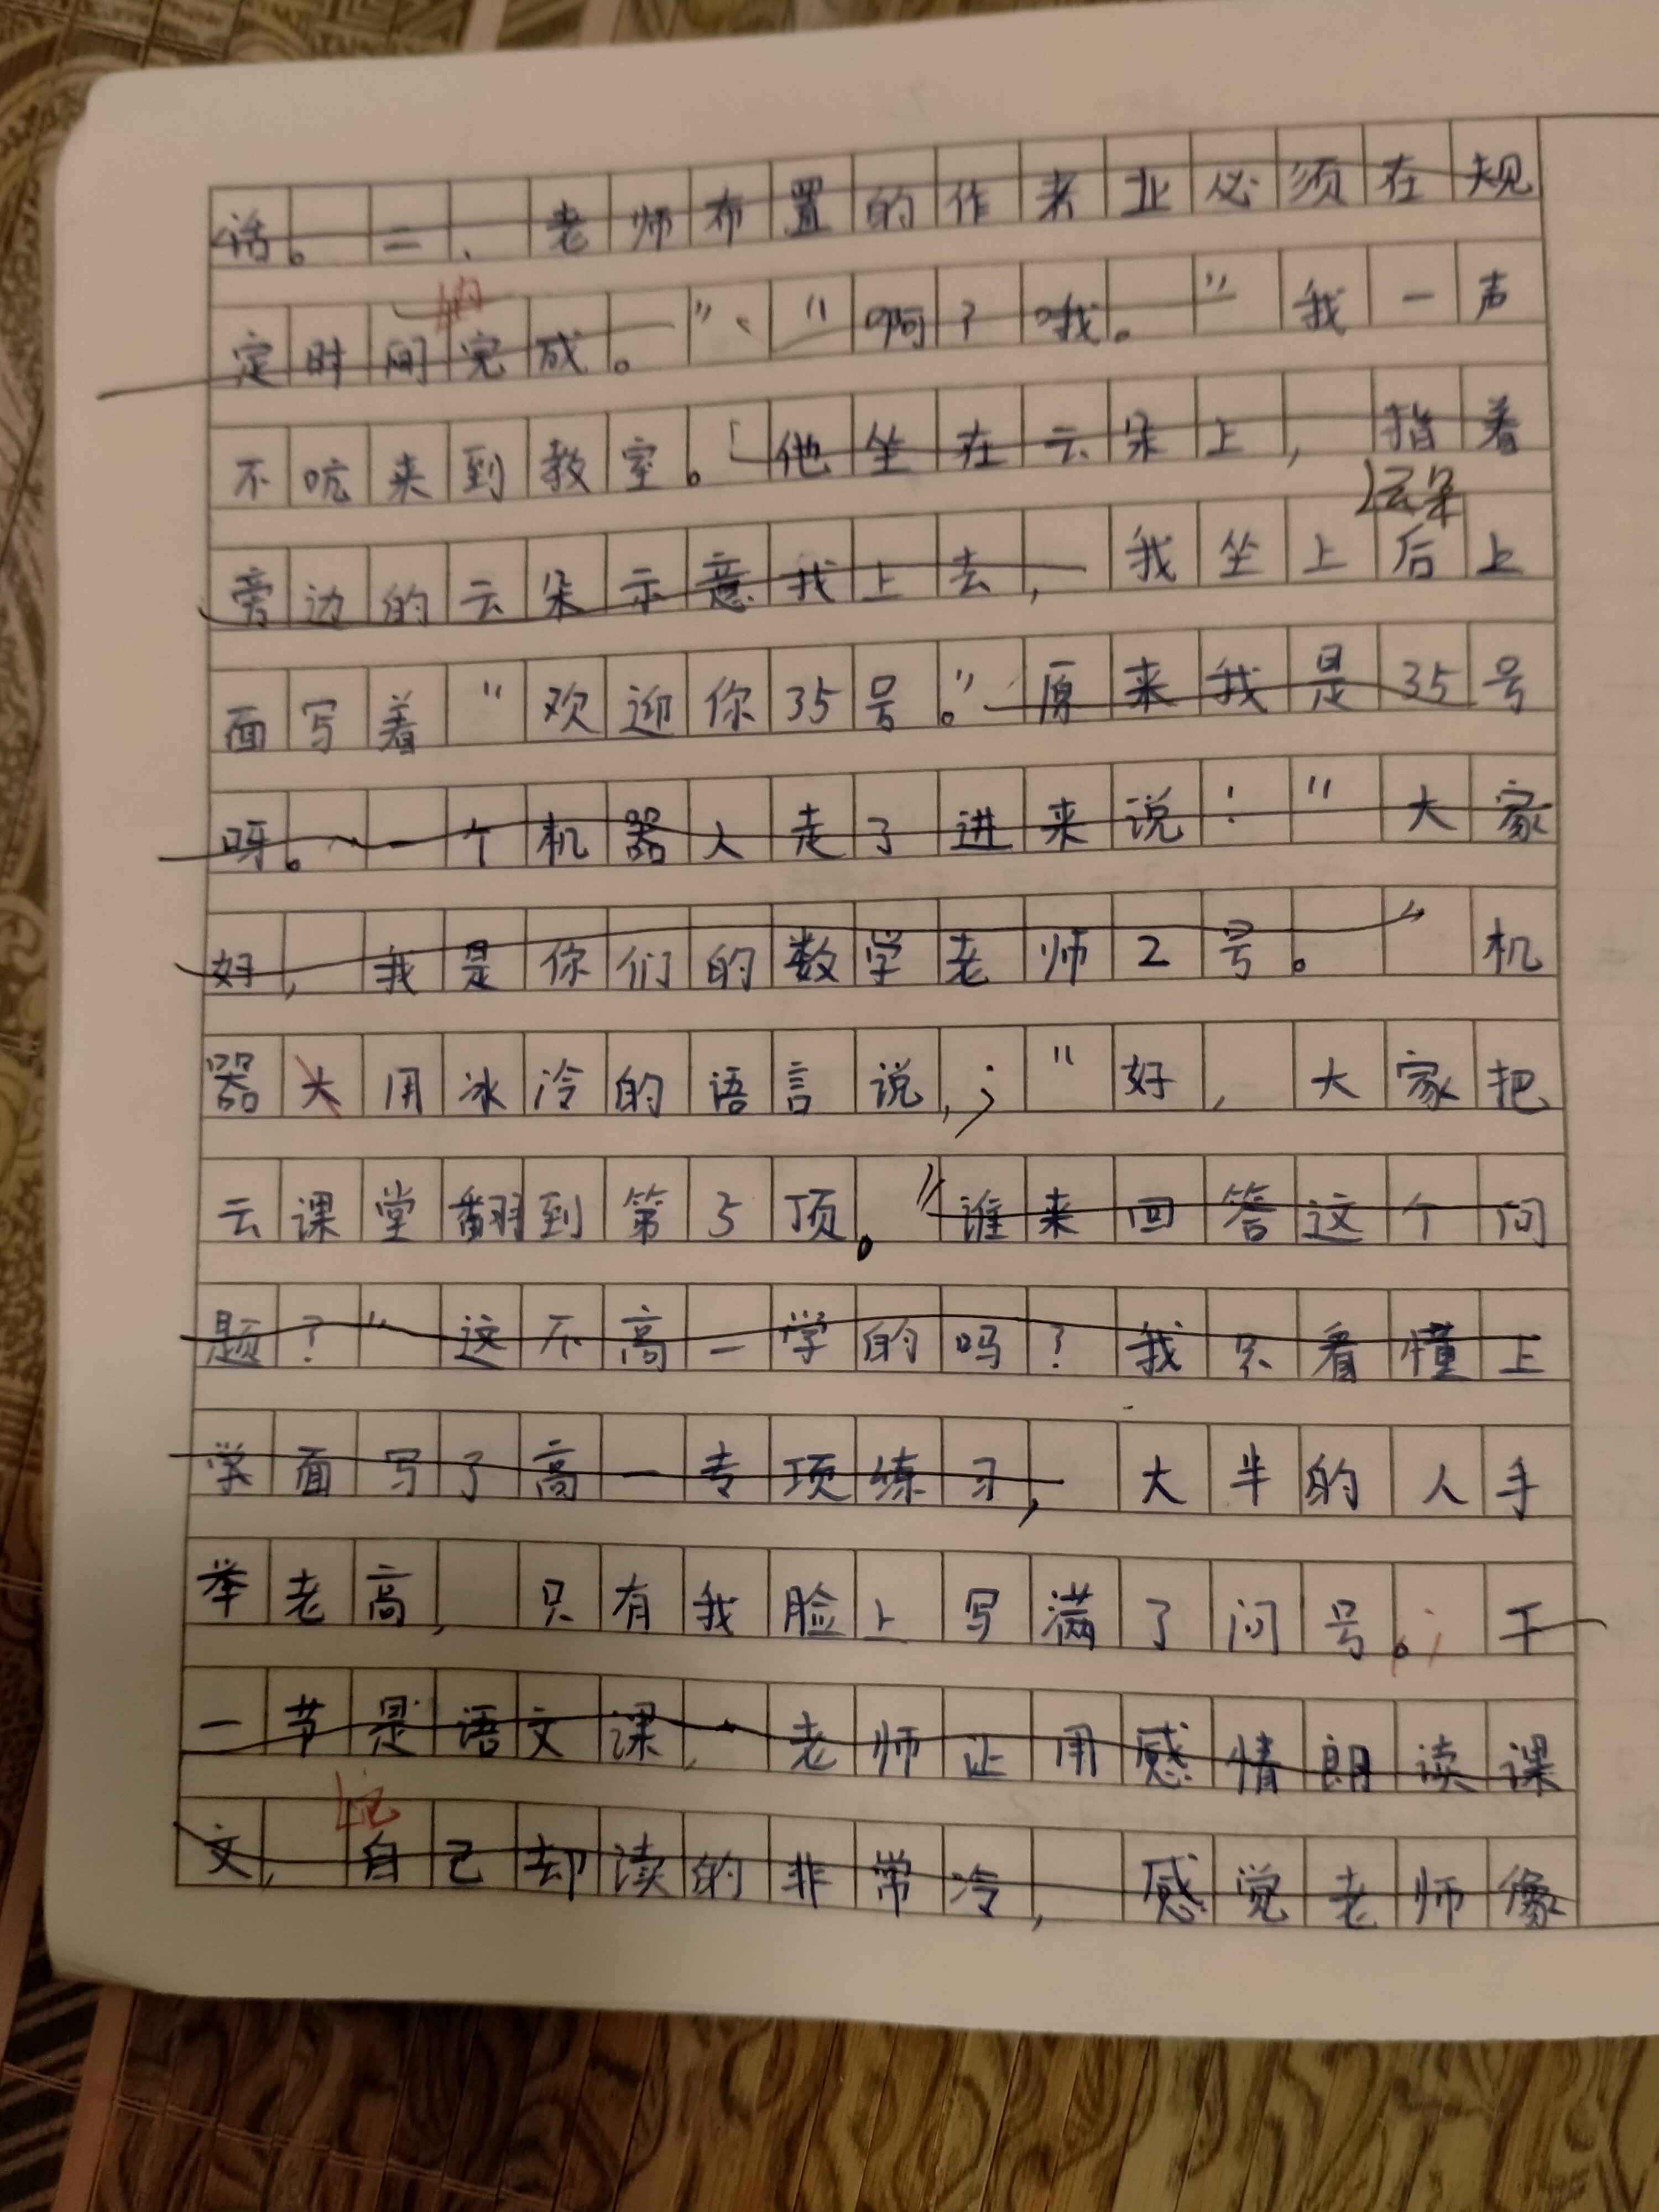 话。二、老师布置的作者业必须在规
定时间完成。”、“啊？哦。”我一声
不吭来到教室。他坐在云朵上，指着
云朵
旁边的云朵示意我上去，我坐上后上
面写着“欢迎你35号。”原来我是35号
呀。一个机器人走了进来说：“大家
好，我是你们的数学老师2号。”机
器大用冰冷的语言说，：“好，大家把
云课堂翻到第5项。”谁来回答这个问
题？”这不高一学的吗？我只看懂上
学面写了高一专项练习，大半的人手
举老高，只有我脸上写满了问号。下
一节是语文课，老师让用感情朗读课
文，自己却读的非常冷，感觉老师像